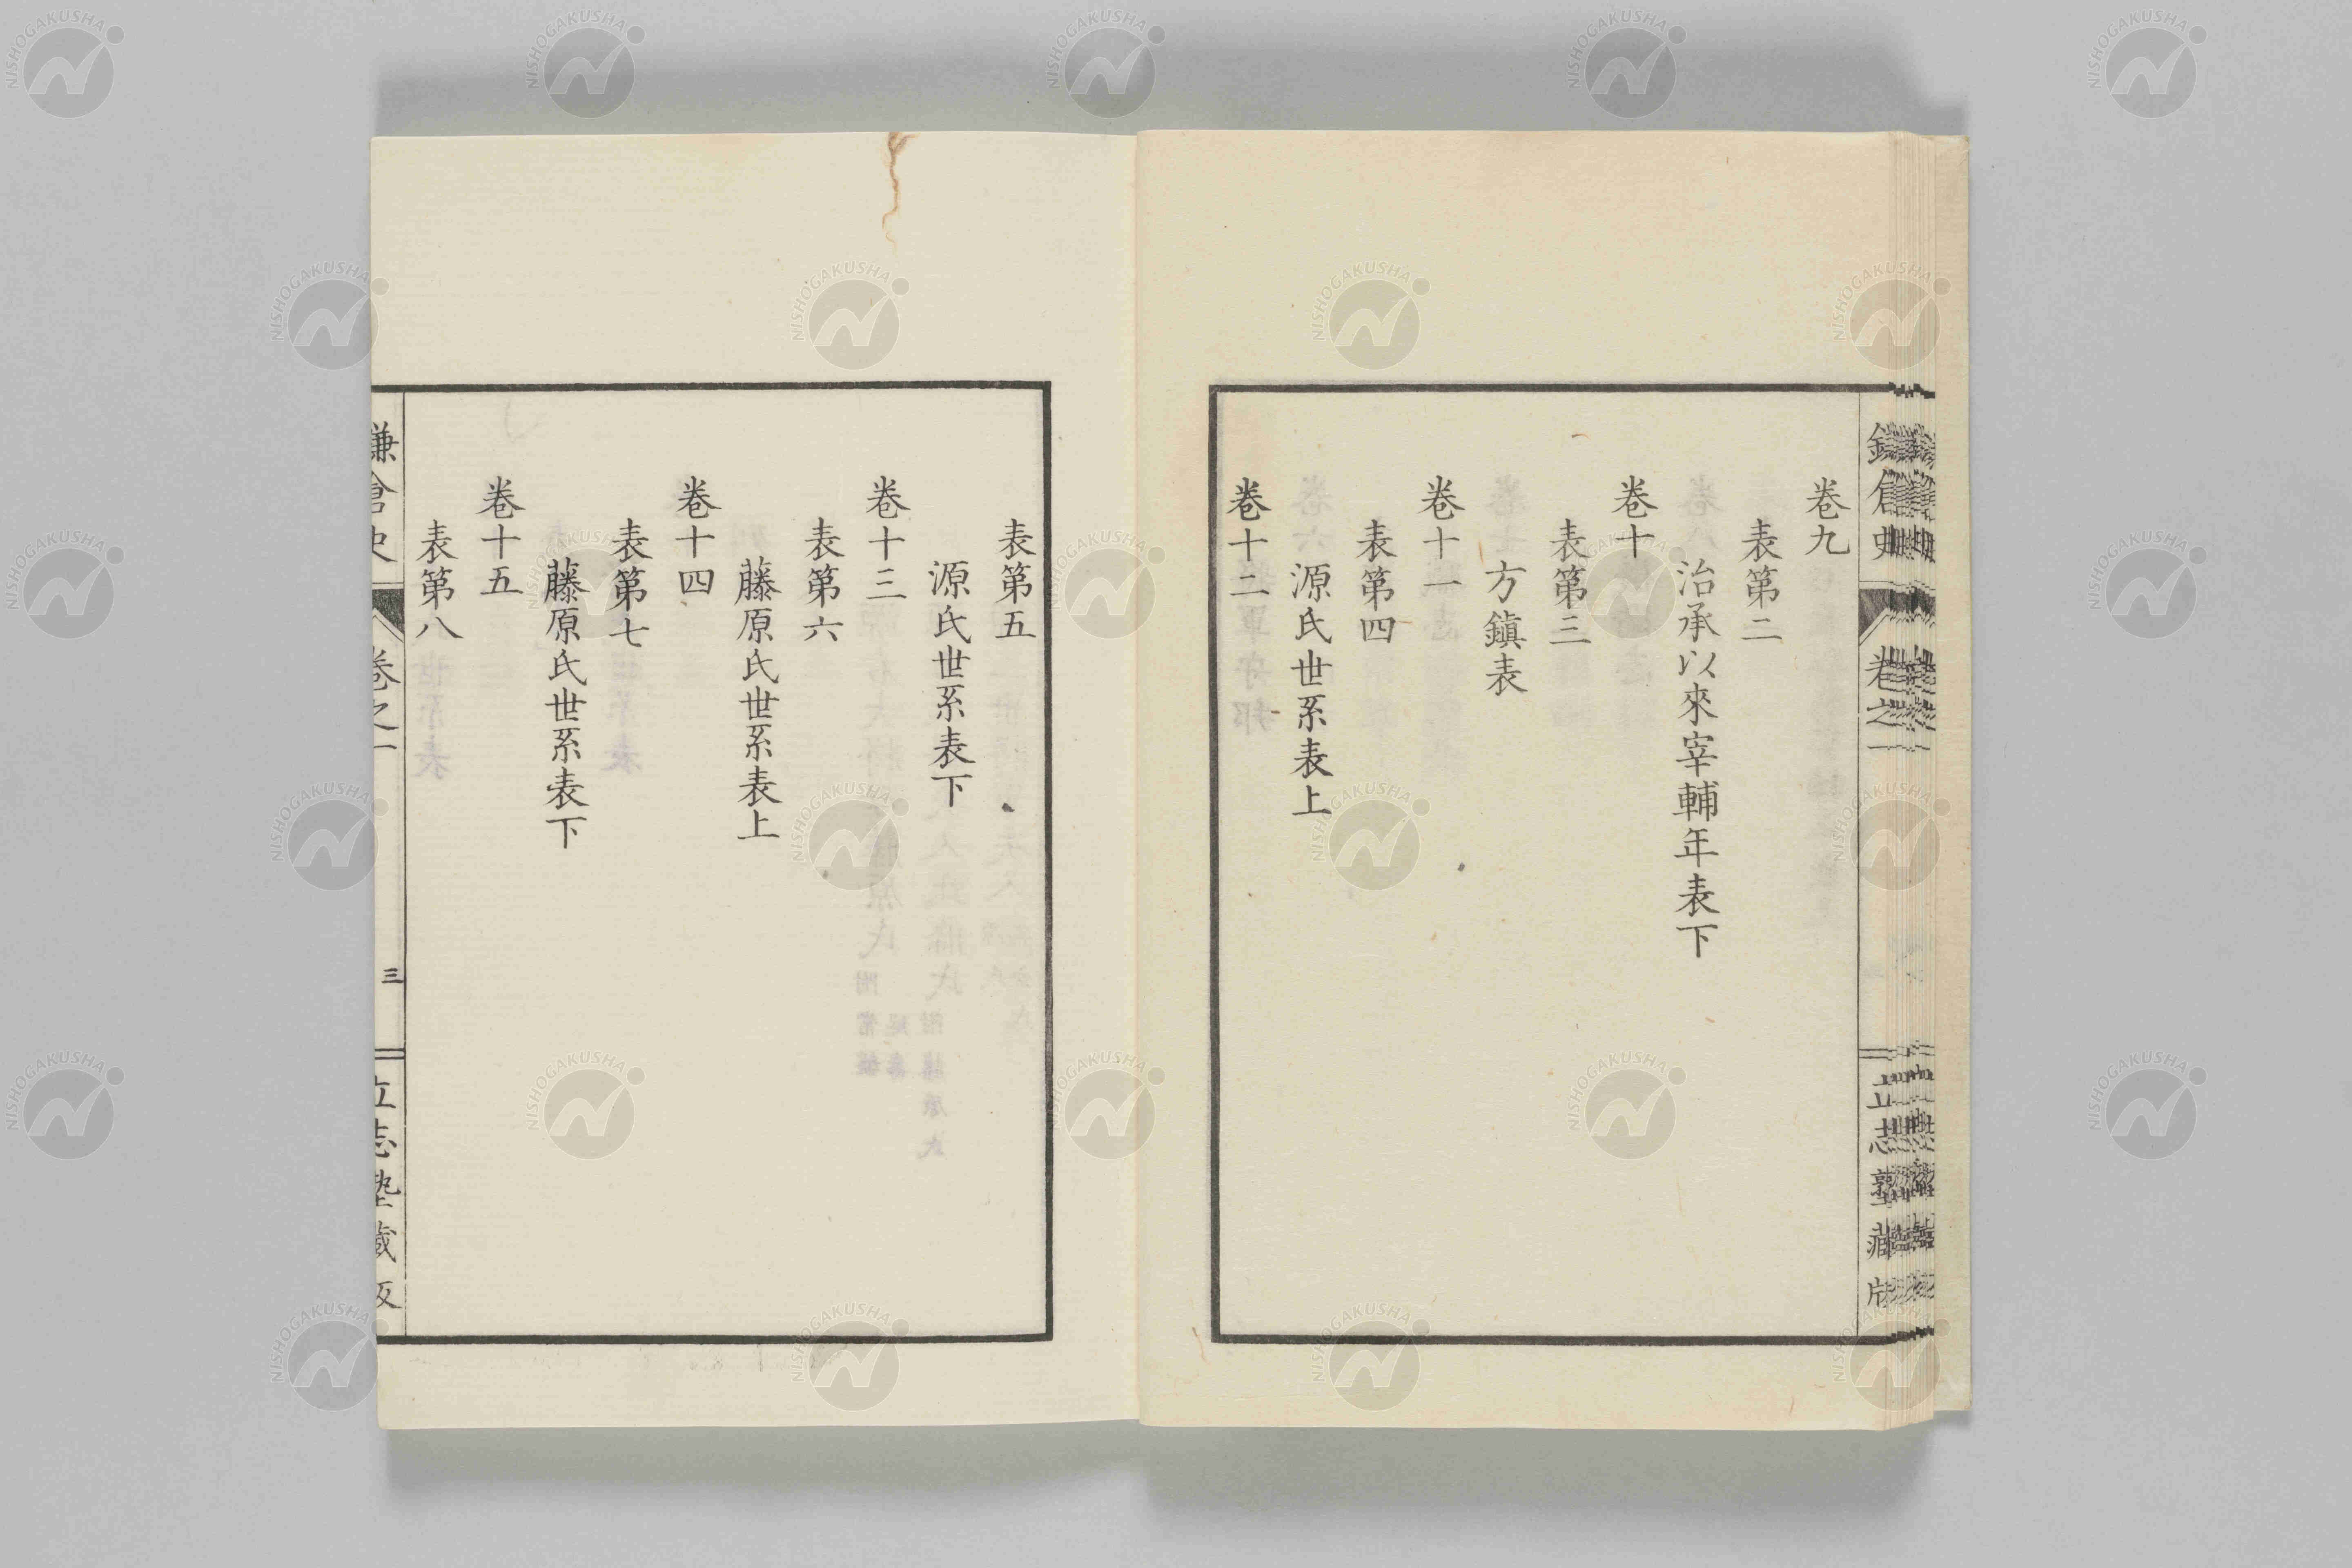 卷九
表第二
治承以來宰輔年表下
卷十
表第三
方鎭表
卷十一
表第四
源氏世系表上
卷十二
表第五
源氏世系表下
卷十三
表第六
藤原氏世系表上
卷十四
表第七
藤原氏世系表下
卷十五
表第八
鎌倉史 卷之一 三 立志塾藏版
NISHOGAKUSHA